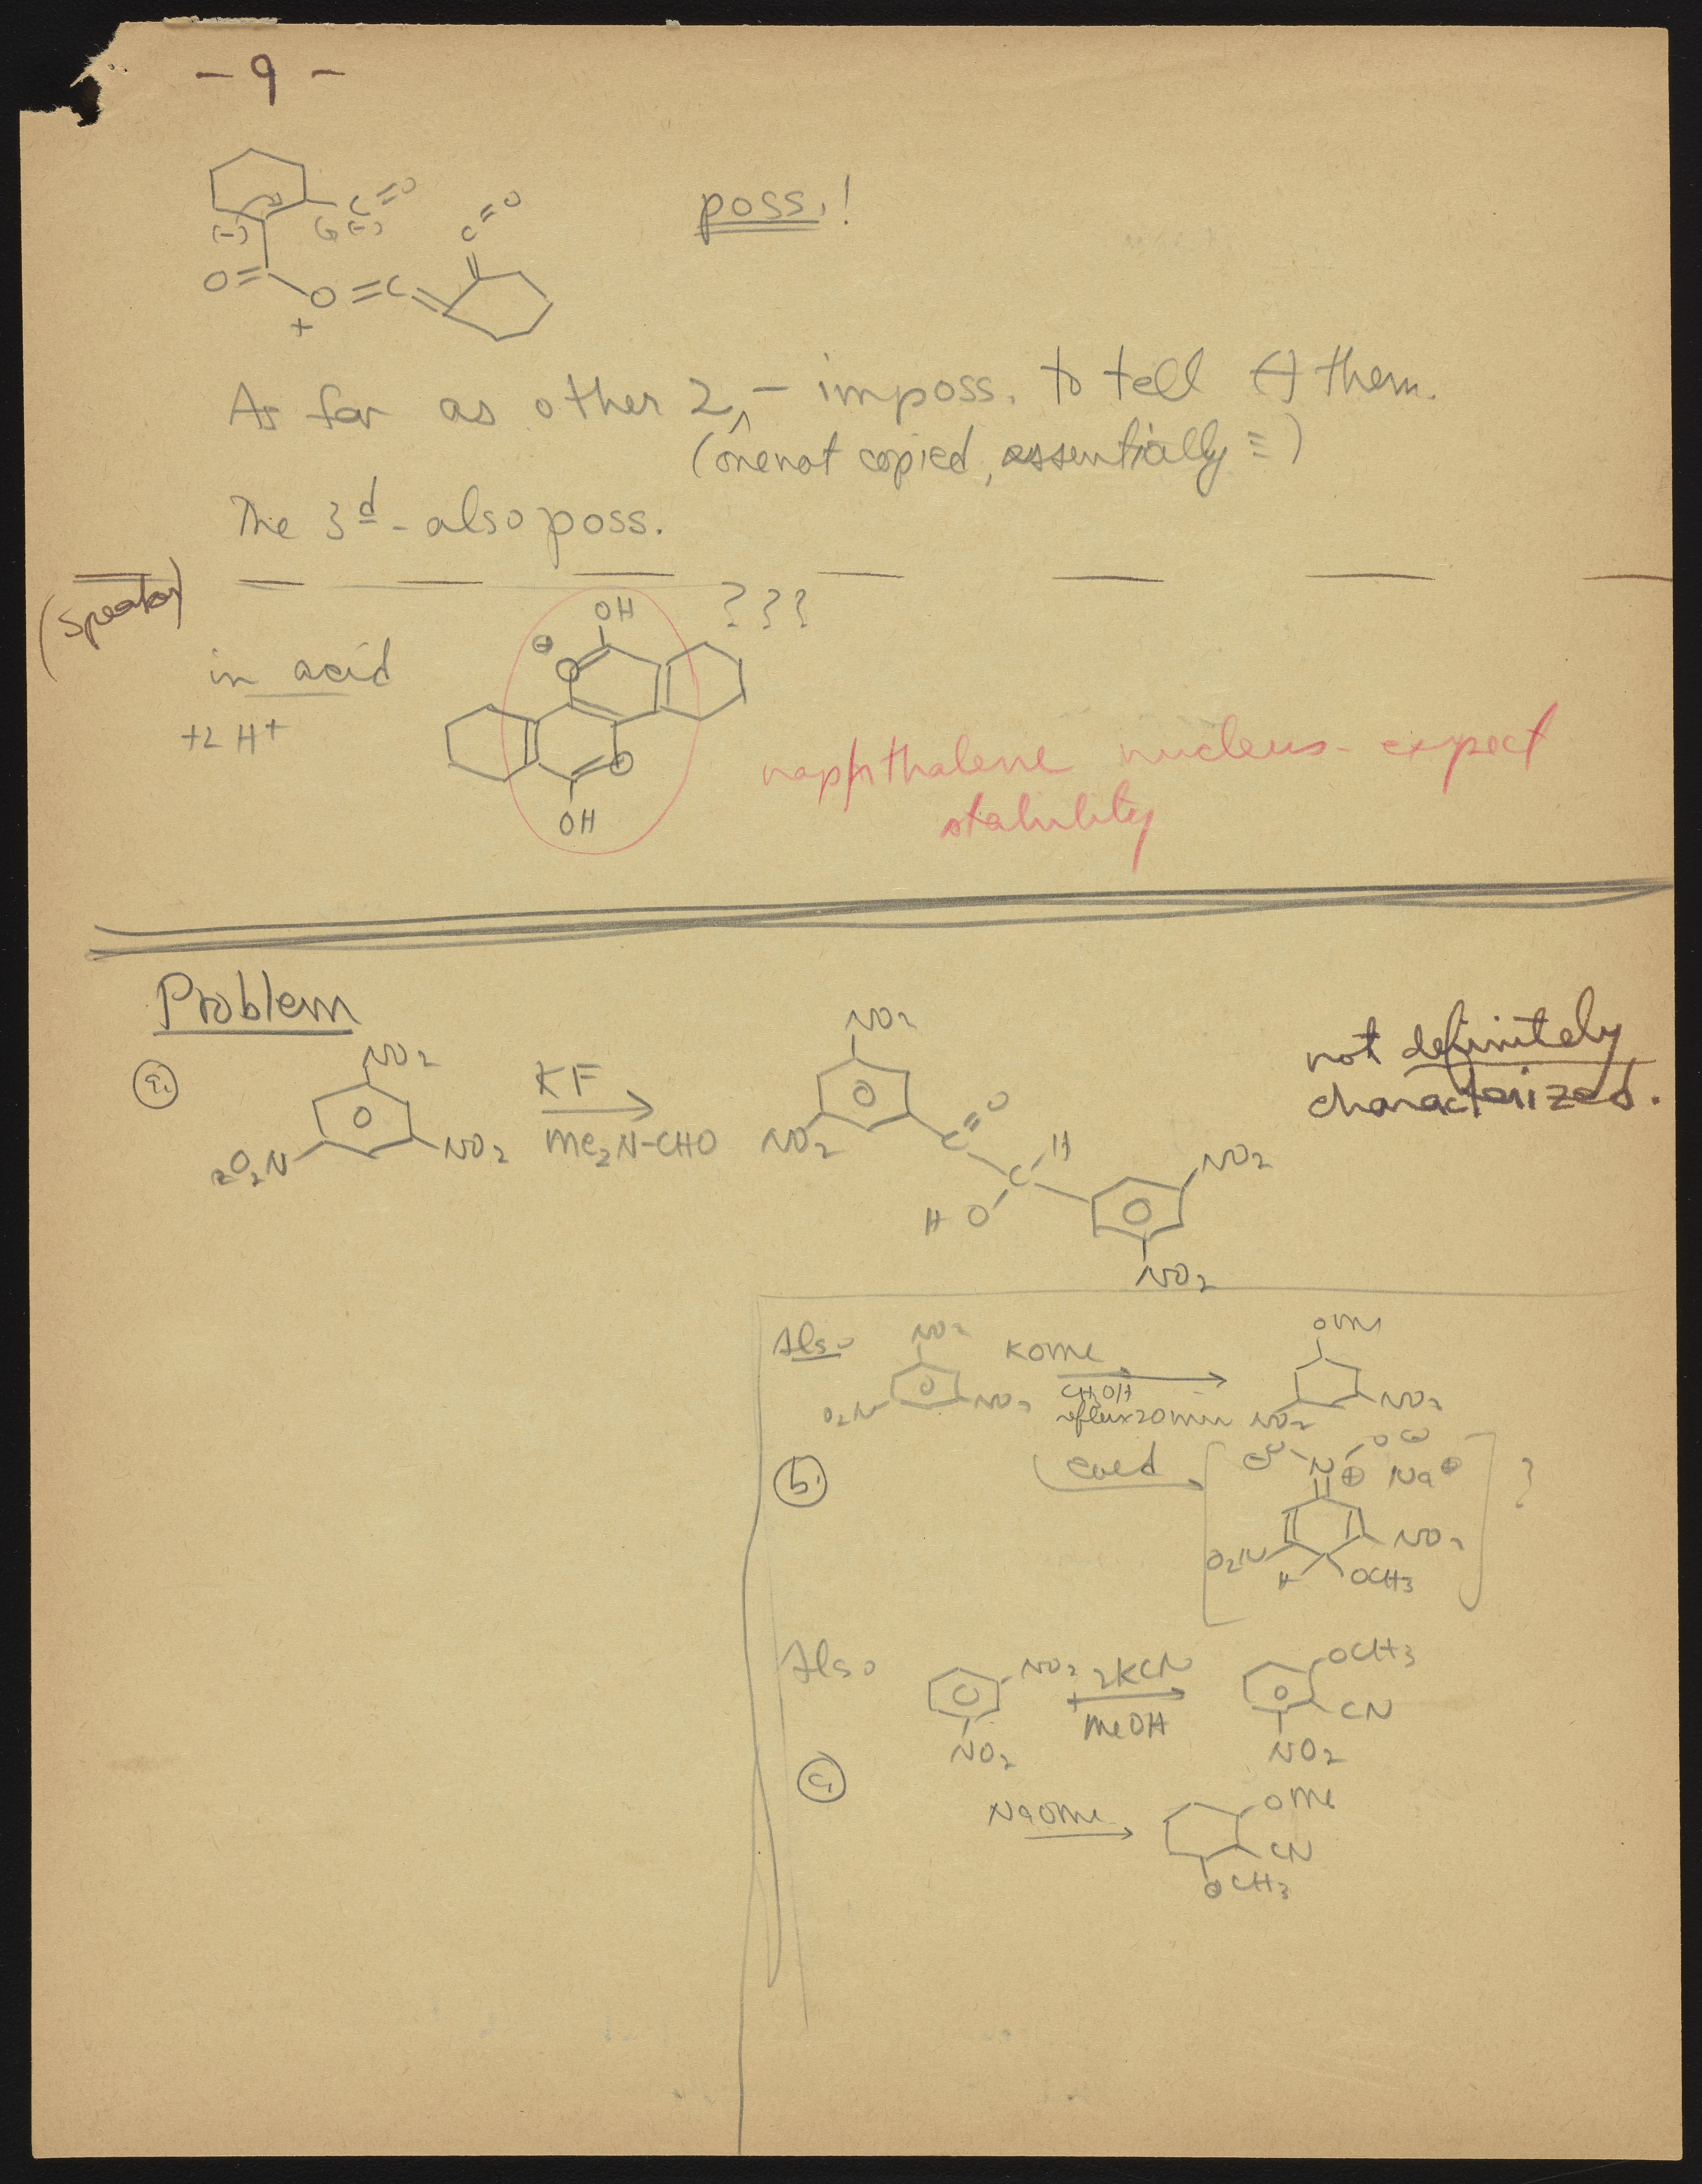 - 9 -
C=O
(-)
(-)
C=O
O=
O=C
+
poss.!
As far as other 2, - imposs. to tell (-) them.
(one not copied, essentially ≡)
The 3d - also poss.
(speaker)
in acid
+2 H+
OH
⊕
O
O
OH
???
naphthalene nucleus - expect
stability
Problem
a.
NO2
O2N
NO2
KF
Me2N-CHO
NO2
NO2
C=O
C
H
HO
NO2
NO2
not definitely
characterized.
Also
NO2
O2N
NO2
KOMe
CH3OH
reflux 20 min
OMe
NO2
NO2
b.
cold
N
⊕
Na⊕
O2N
NO2
H
OCH3
?
Also
NO2
NO2
2KCN
MeOH
OCH3
CN
NO2
c.
NaOMe
OMe
CN
OCH3